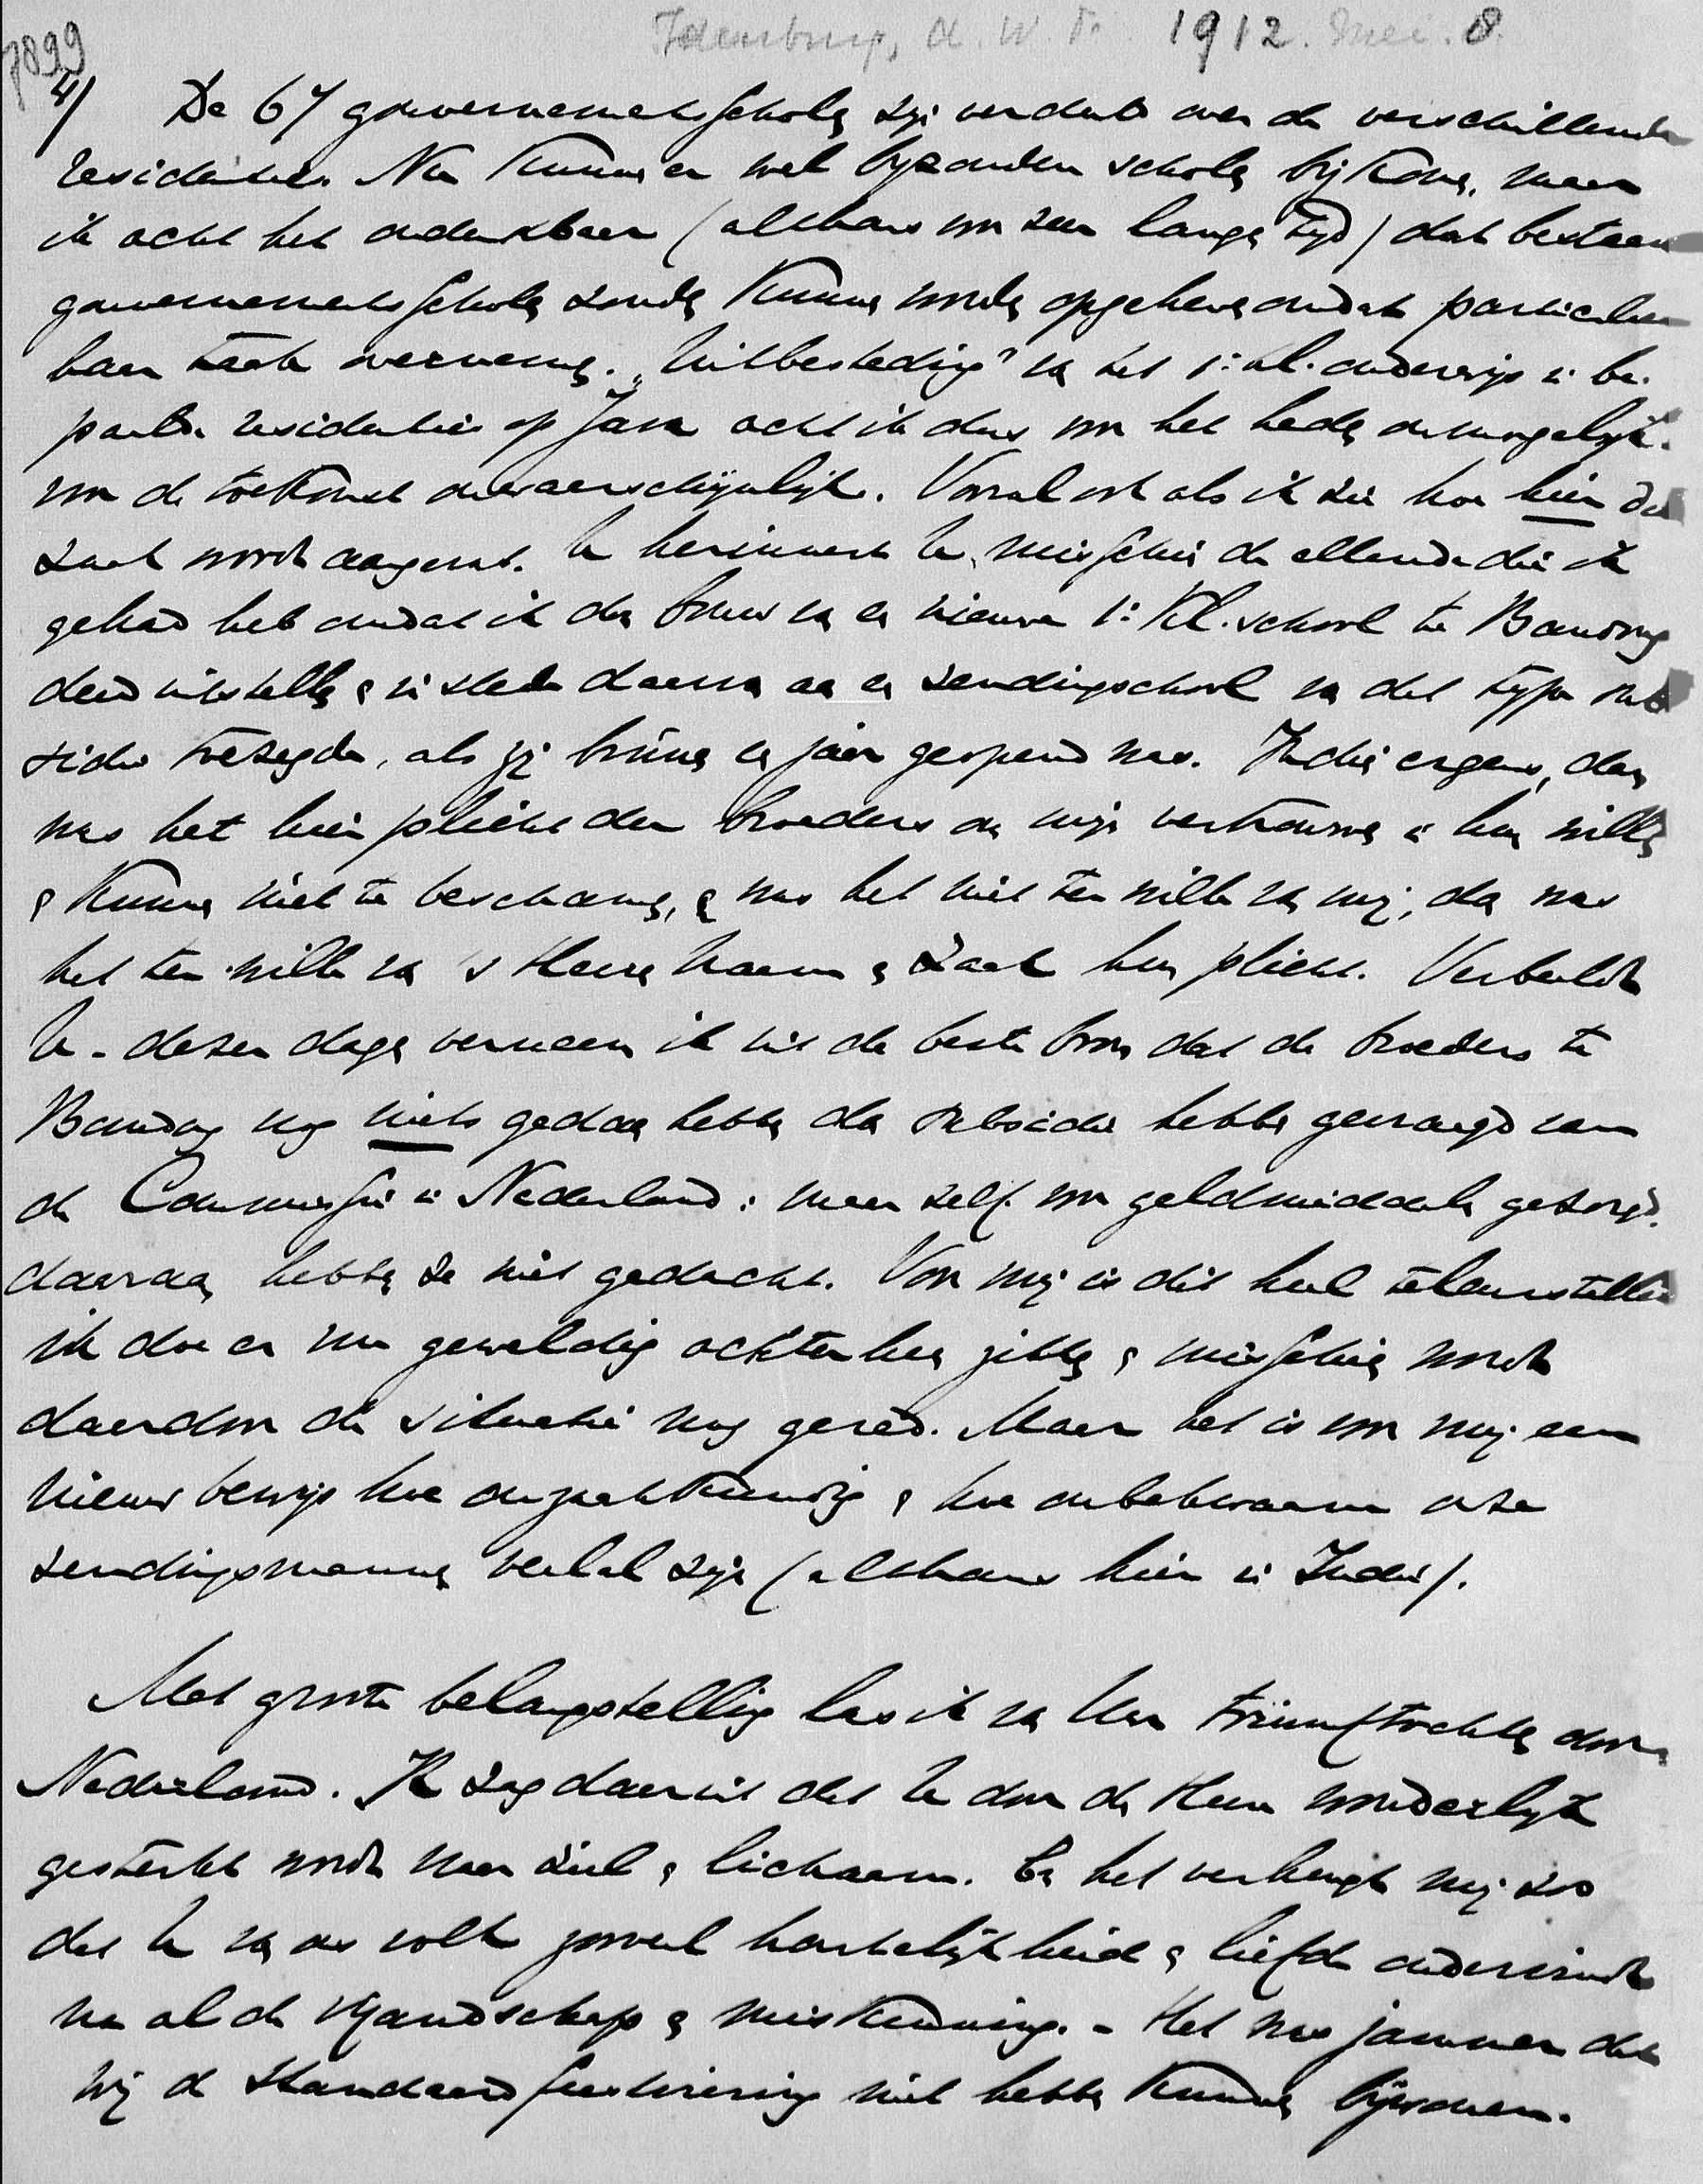 Idenburg, A.W.F. 1912. Mei. 8.
7899
4/ De 67 gouvernementsscholen zijn verdeeld over de verschillende
residenties. Nu kunnen er wel bijzondere scholen bijkomen, maar
ik acht het ondenkbaar (althans voor zeer lange tijd) dat bestaan
gouvernementsscholen zouden kunnen worden opgeheven omdat particulieren
haar taak overnemen. „Uitbesteding" van het 1e kl. onderwijs in be-
paalde residenties op Java acht ik dus voor het heden onmogelijk.
voor de toekomst onwaarschijnlijk. Vooral ook als ik zie hoe hier de
zaak wordt aangevat. U herinnert U misschien de ellende die ik
gehad heb omdat ik den bouw van een nieuwe 1e Kl. school te Bandoeng
deed uitstellen en in stede daarvan aan een zendingschool van dat type sub
sidie toezegde, als zij binnen een jaar geopend was. Indien ergens, dan
was het hier plicht der broeders om mijn vertrouwen in hun willen
en kunnen niet te beschamen, en was het niet ten wille van mij, dan was
het ten wille van 's Heeren Naam en Zaak hun plicht. Verbeeldt
U - dezer dagen verneem ik uit de beste bron dat de broeders te
Bandoeng nog niets gedaan hebben dan subsidie hebben gevraagd aan
de Commissie in Nederland: maar zelf voor geldmiddelen gezorgd.
daaraan hebben ze niet gedacht. Voor mij is dit heel teleurstellend
ik doe er nu geweldig achterheen zitten en misschien wordt
daardoor de situatie nog gered. Maar het is voor mij een
nieuw bewijs hoe onzaakkundig en hoe onbekwaam onze
zendingsmannen veelal zijn (althans hier in Indië).
Met groote belangstelling las ik van Uw triumftochten door
Nederland. Ik zag daaruit dat U door de Heer wonderlijk
gesterkt wordt naar ziel en lichaam. En het verheugt mij zoo
dat U van ons volk zooveel hartelijkheid en liefde ondervindt
na al de vijandschap en miskenning. - Het was jammer dat
wij de Standaardfeestviering niet hebben kunnen bijwonen.